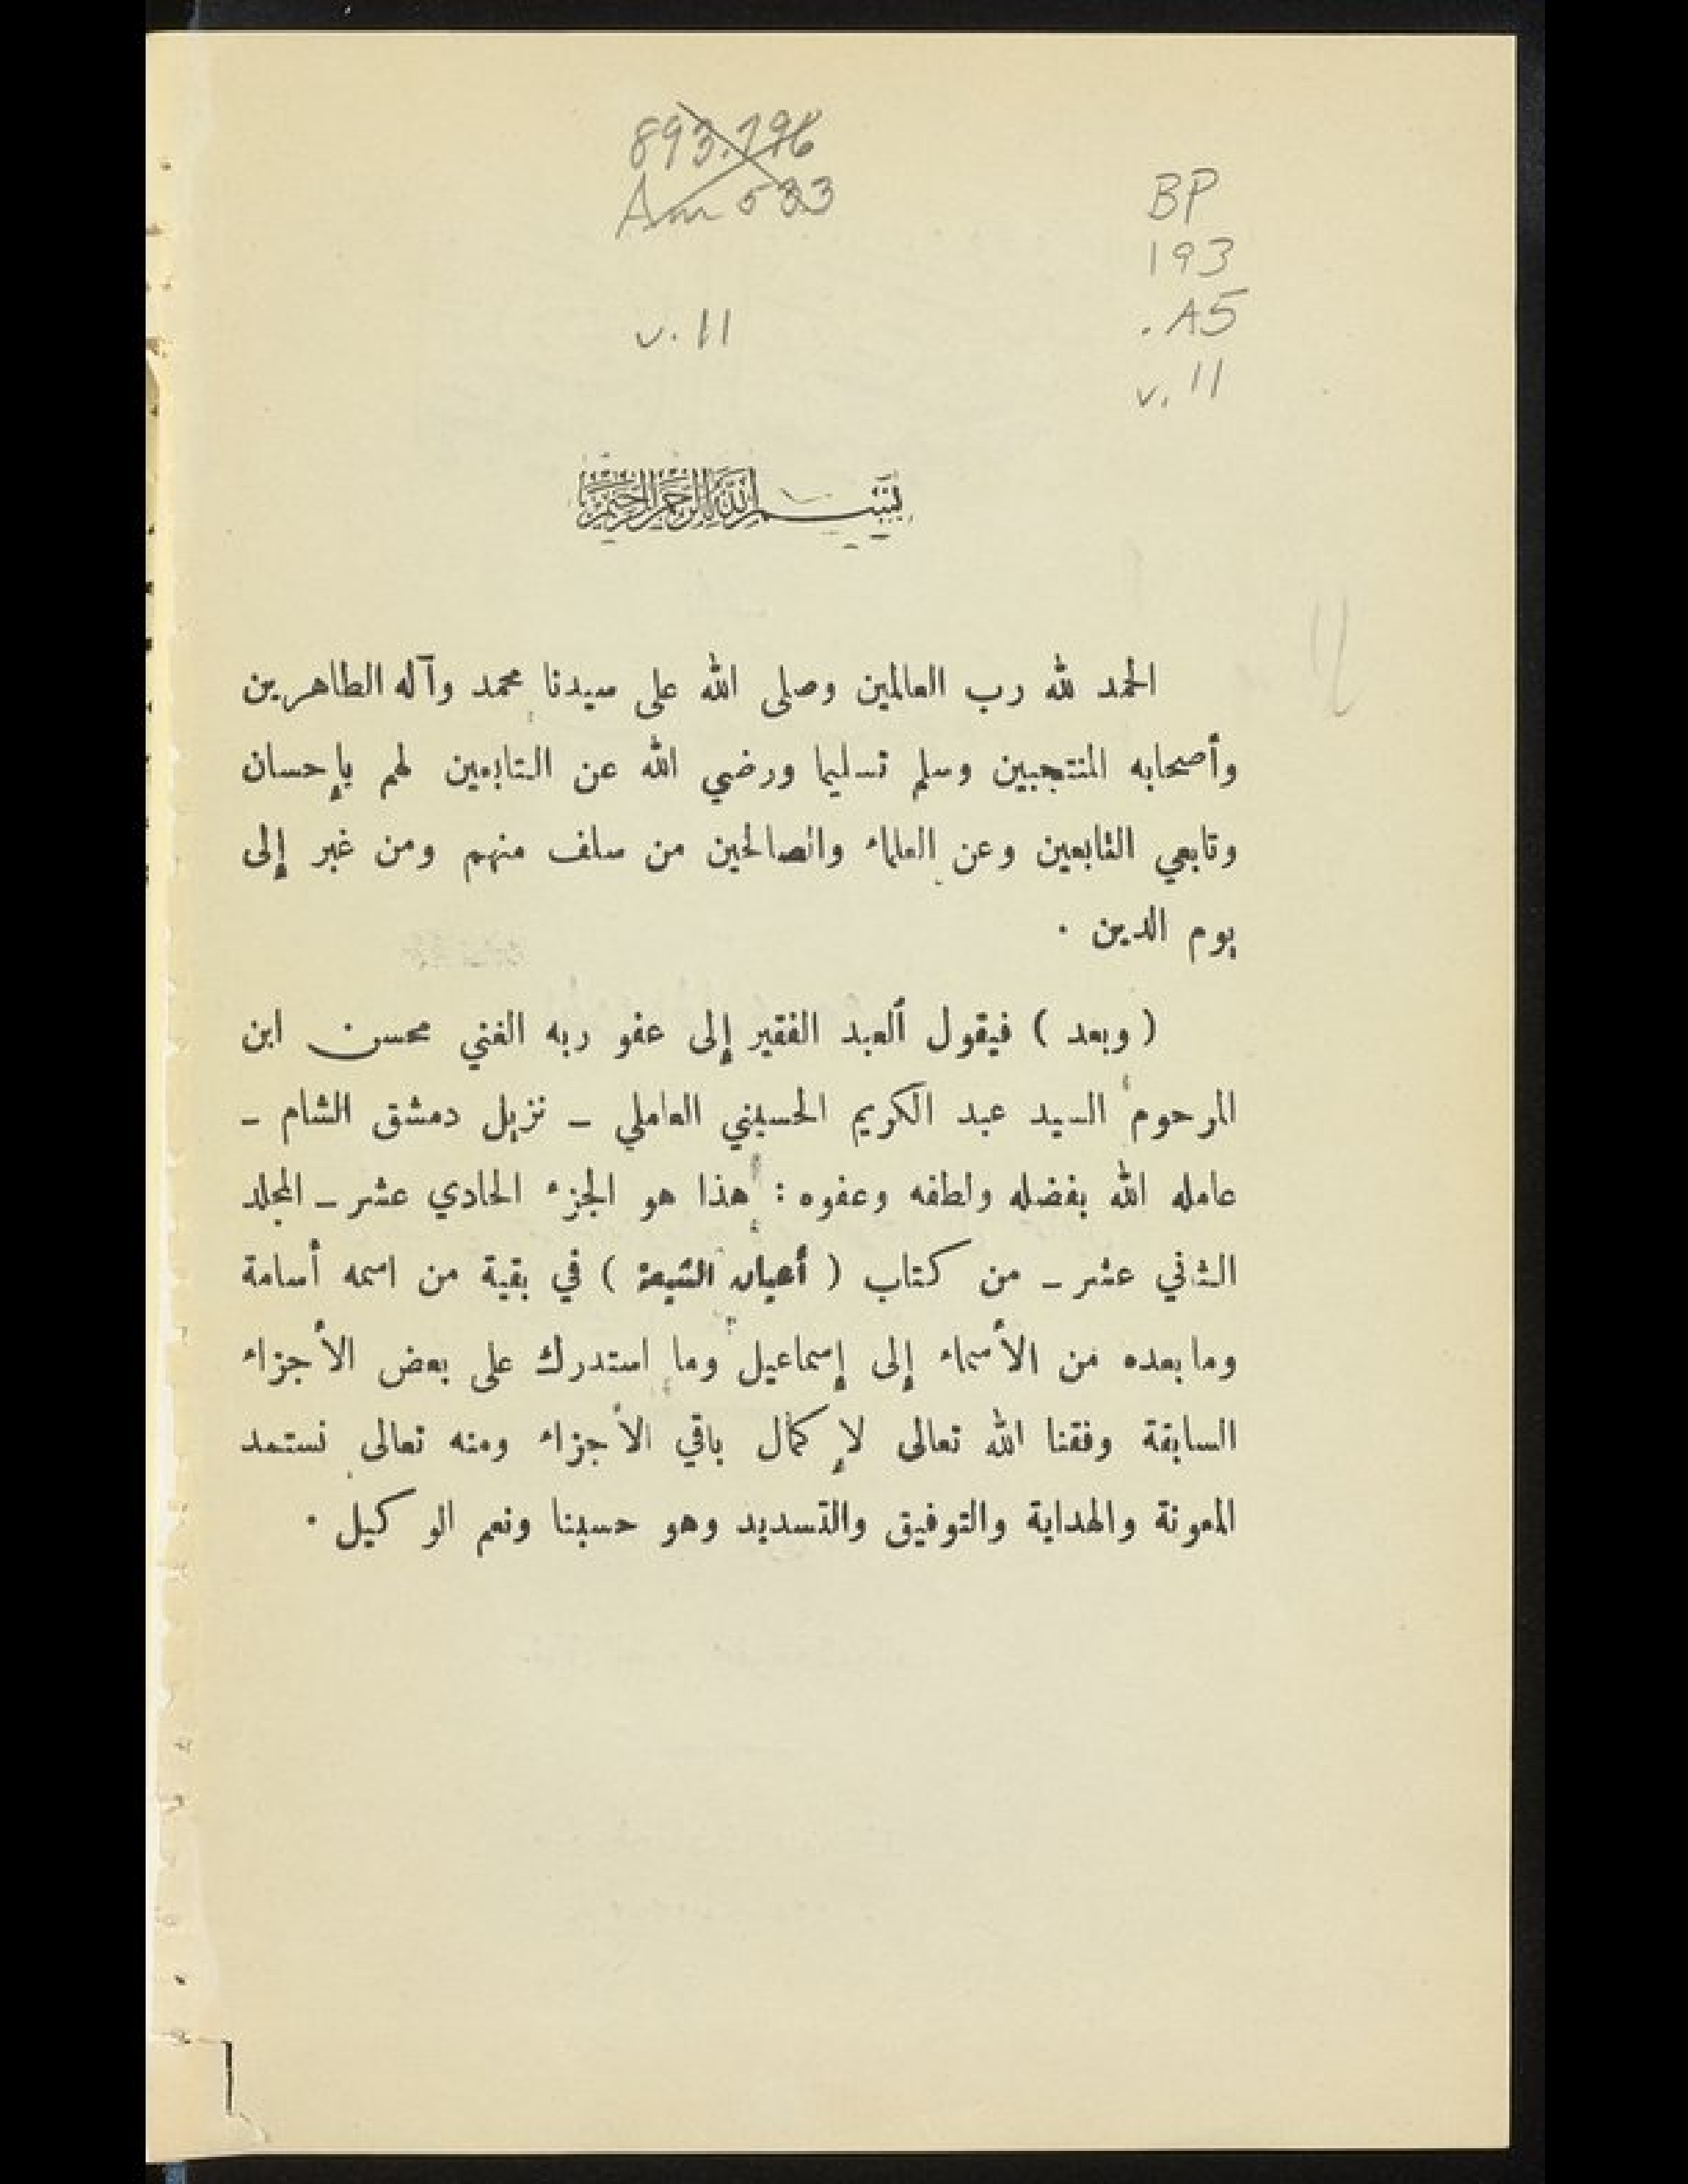 893.796
Am 533
BP
193
.A5
v. 11
v. 11
بسم الله الرحمن الرحيم
11
الحمد لله رب العالمين وصلى الله على سيدنا محمد وآله الطاهرين
وأصحابه المنتجبين وسلم تسليما ورضي الله عن التابعين لهم بإحسان
وتابعي التابعين وعن العلماء والصالحين من سلف منهم ومن غبر إلى
يوم الدين .
( وبعد ) فيقول العبد الفقير إلى عفو ربه الغني محسن ابن
المرحوم السيد عبد الكريم الحسيني العاملي – نزيل دمشق الشام –
عامله الله بفضله ولطفه وعفوه : هذا هو الجزء الحادي عشر – المجلد
الثاني عشر – من كتاب ( أعيان الشيعة ) في بقية من اسمه أسامة
وما بعده من الأسماء إلى إسماعيل وما استدرك على بعض الأجزاء
السابقة وفقنا الله تعالى لإكمال باقي الأجزاء ومنه تعالى نستمد
المعونة والهداية والتوفيق والتسديد وهو حسبنا ونعم الوكيل .